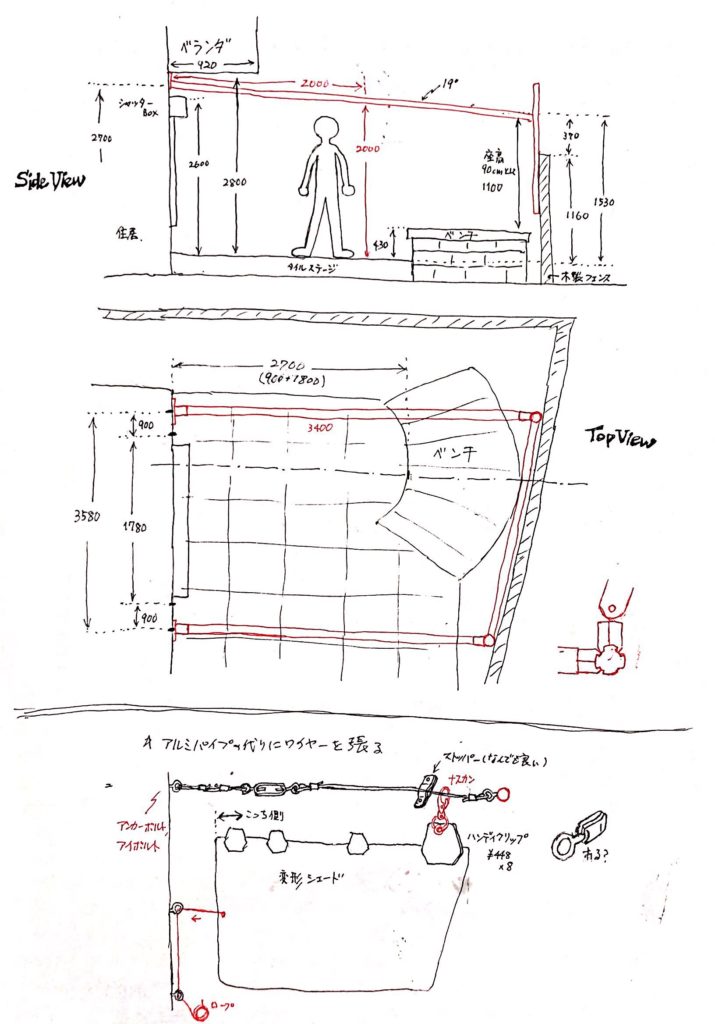 ベランダ
920
2000
19°
シャッター
BOX
2700
2600
2800
2000
座高
90cm以上
1100
370
1160
1530
Side View
住居
430
ベンチ
タイルステージ
木製フェンス
2700
(900+1800)
900
3400
ベンチ
Top View
3580
1780
900
アルミパイプの代りにワイヤーを張る
ストッパー(なんでも良い)
ナスカン
アンカーボルト,
アイボルト
こっち側
ハンディクリップ
¥448
×8
われる?
変形シェード
ロープ